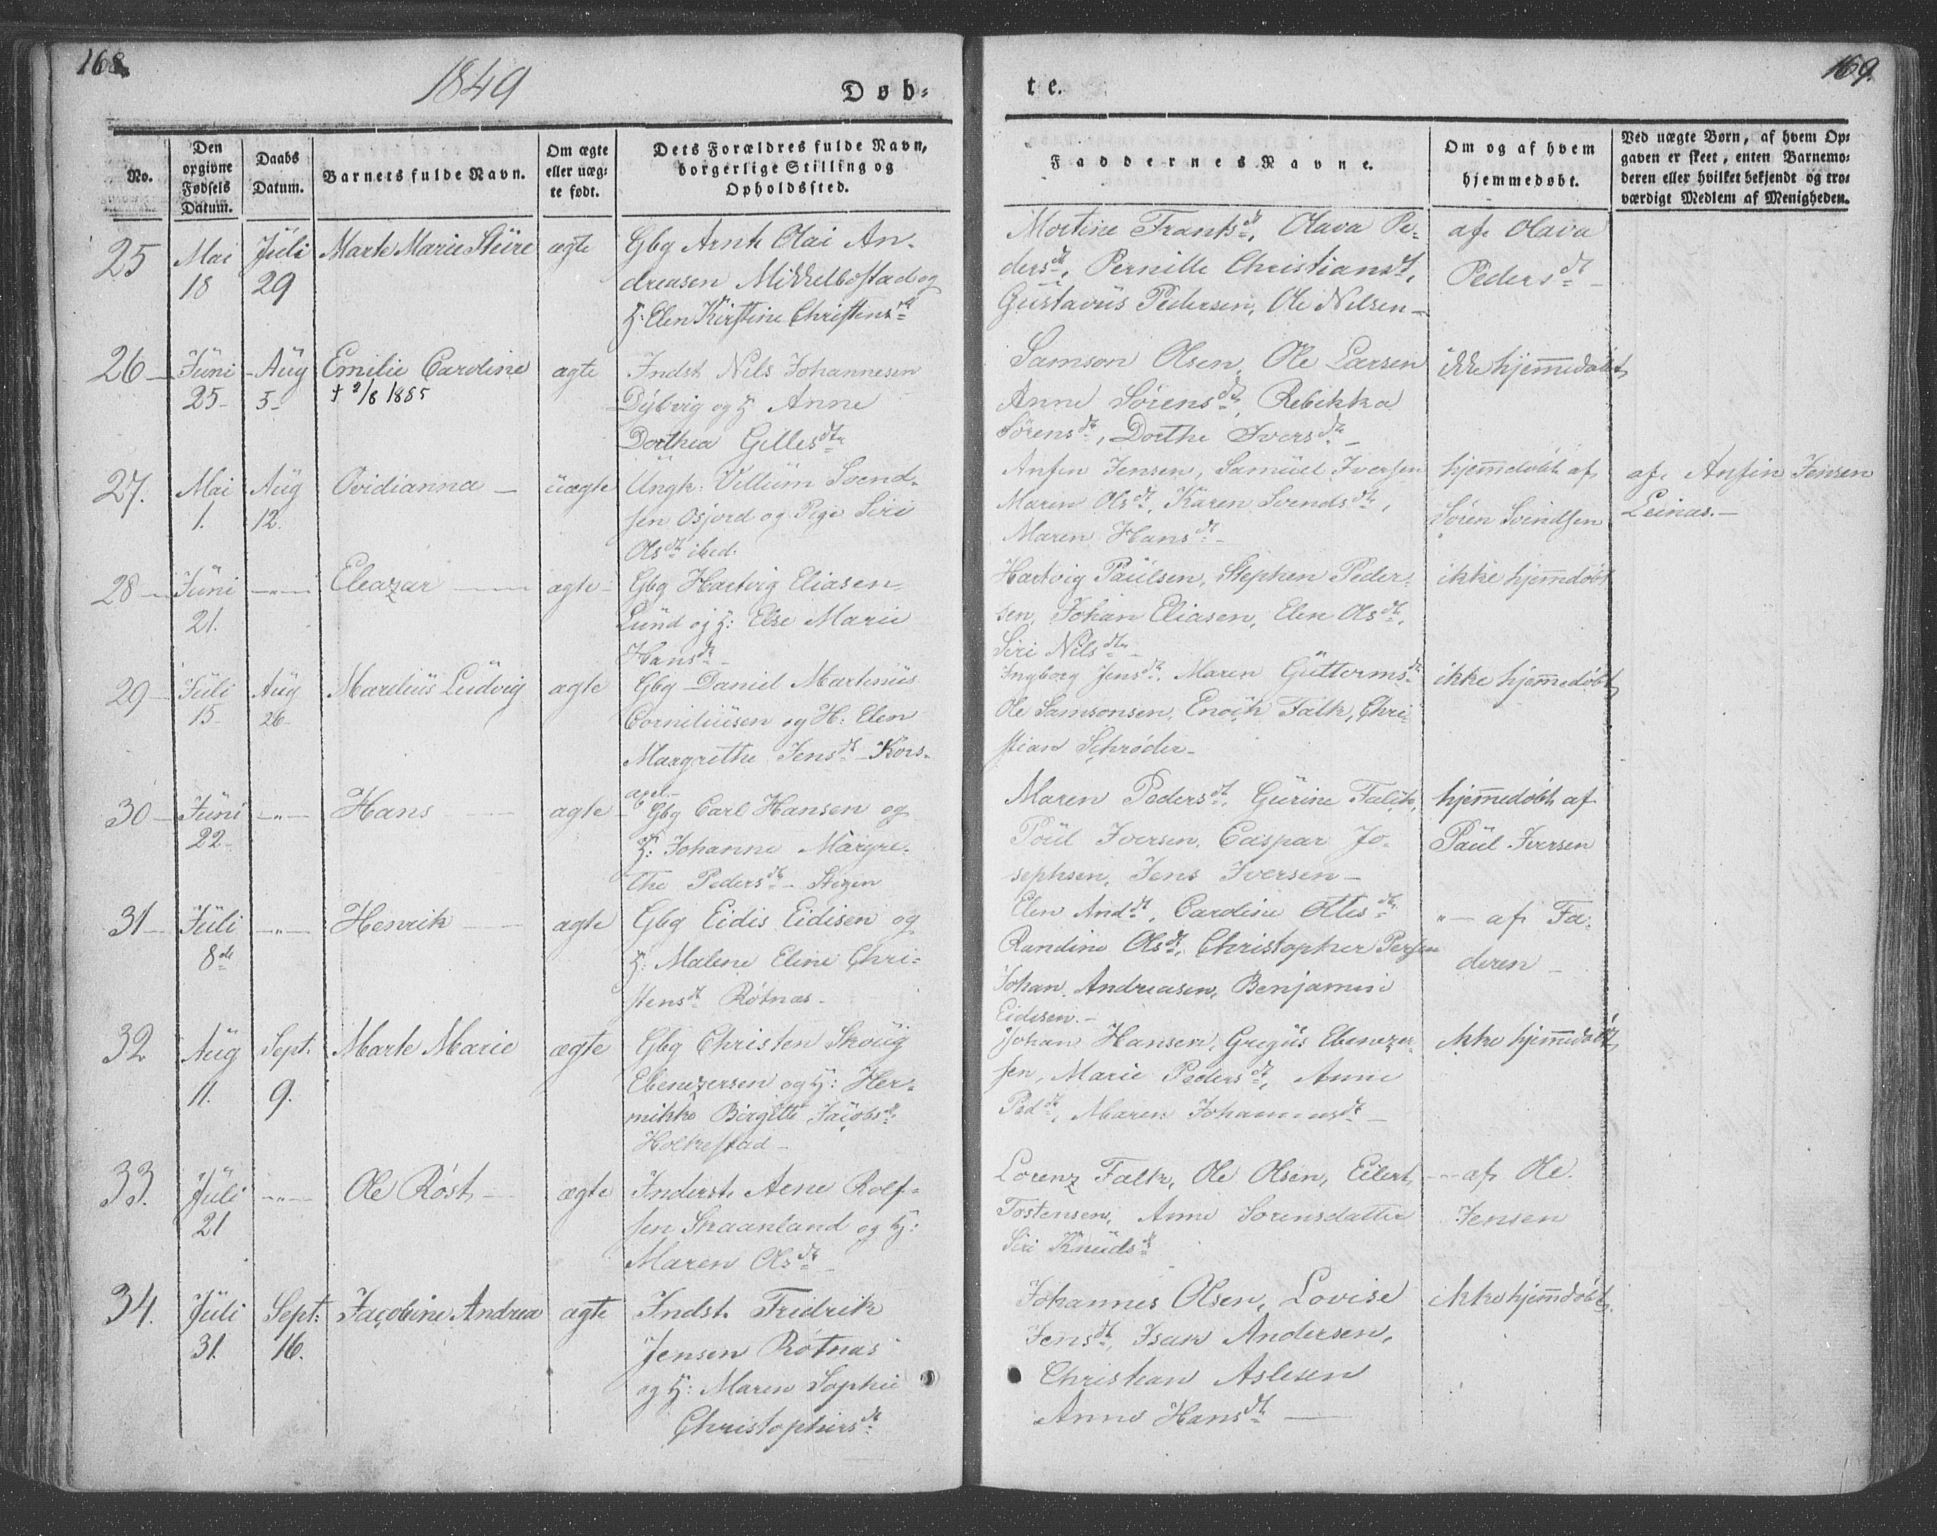 168.
1849
Døb-
No.
Den opgivne Fødsels Datum.
Daabs Datum.
Barnets fulde Navn.
Om ægte eller uæg- te født.
Dets Forældres fulde Navn, borgerlige Stilling og Opholdsted.
25 Mai 18 Juli 29 Marte Marie Stüre ægte
Gbg Arnt Olai An-
dreasen Mikkelbostad og
H: Elen Kirstine Christensdt
26 Juni 25 Aug 5 Emilie Caroline ægte
† 2/8 1885
Indst Nils Johannesen
Dybvig og H Anne
Dorthea Gillesdtr
27. Mai 1. Aug 12. Ovidianna uægte
Ungk: Villum Svend-
sen Osjord og Pige Siri
Olsdtr ibid.
28 Juni 21. Eleazar ægte
Gbg Hartvig Eliasen
Lund og H: Else Marie
Hansdtr
29 Juli 15 Aug 26 Marelius Ludvig ægte
Gbg Daniel Martinus
Corneliusen og H: Elen
Margrethe Jensdt Kors-
30 Juni 22 Hans ægte
Gbg Carl Hansen og
H: Johanne Margre-
the Pedersdt
31 Juli 8de Henrik ægte
Gbg Eidis Eidisen og
H: Malene Eline Chri-
stensdt Røtnas
32 Aug 11. Sept. 9. Marte Marie ægte
Gbg Christen Skoug
Ebenezersen og H: Her-
mikke Birgitte Jacobsdt
33. Juli 21 Ole Røst ægte
Inderst. Arne Rolf-
sen Straanland og H:
Maren Olsdt
34. Juli 31. Sept: 16. Jacobine Andrea ægte
Indst. Fridrik
Jensen Røtnas
og H: Maren Sophie
Christophersdt
te.
169.
Faddernes Navne.
Om og af hvem hjemmedøbt.
Ved uægte Børn, af hvem Op- gaven er skeet, enten Barnemo- deren eller hvilket bekjendt og tro- værdigt Medlem af Menigheden.
Mortine Frantsdt, Olava Pe-
dersdt, Pernille Christiansdt,
Gustavus Pedersen, Ole Nilsen
af Olava
Pedersdt
Samson Olsen, Ole Larsen
Anne Sørensdt, Rebikka
Sørensdtr, Dorthe Iversdtr
ikke hjemmedøbt
Anfin Jensen, Samuel Iversen
Maren Olsdt, Karen Svendsdtr,
Maren Hansdt
hjemmedøbt af
Søren Svindsen
af Anfin Jensen
Leinas.
Hartvig Paulsen, Stephen Peder-
sen, Johan Eliasen, Elen Olsdtr,
Siri Nilsdtr
ikke hjemmedøbt
Ingborg Jensdtr, Maren Guttormsdtr
Ole Samsonsen, Enoch Falk, Chri-
stian Schrøder
ikke hjemmedøbt
Maren Pedersdt, Gurine Falck,
Poul Iversen, Caspar Jo-
sephsen, Jens Iversen
hjemmedøbt af
Paul Iversen
Elen Anddt, Caroline Olesdtr
Randine Olsdt, Christopher Persen
Johan Andreasen, Benjamin
Eidesen.
" af Fa-
deren
Johan Hansen, Gregus Ebenezer-
sen, Marie Pedersdt, Anne
Peddt, Maren Johannesdt
ikke hjemmedøbt
Lorenz Falk, Ole Olsen, Eilert
Tostensen, Anne Sorensdatter
Siri Knudsdt
af Ole
Jensen
Johannes Olsen, Lovise
Jensdt, Isak Andersen,
Christian Aslesen
Anne Hansdt
ikke hjemmdøbt